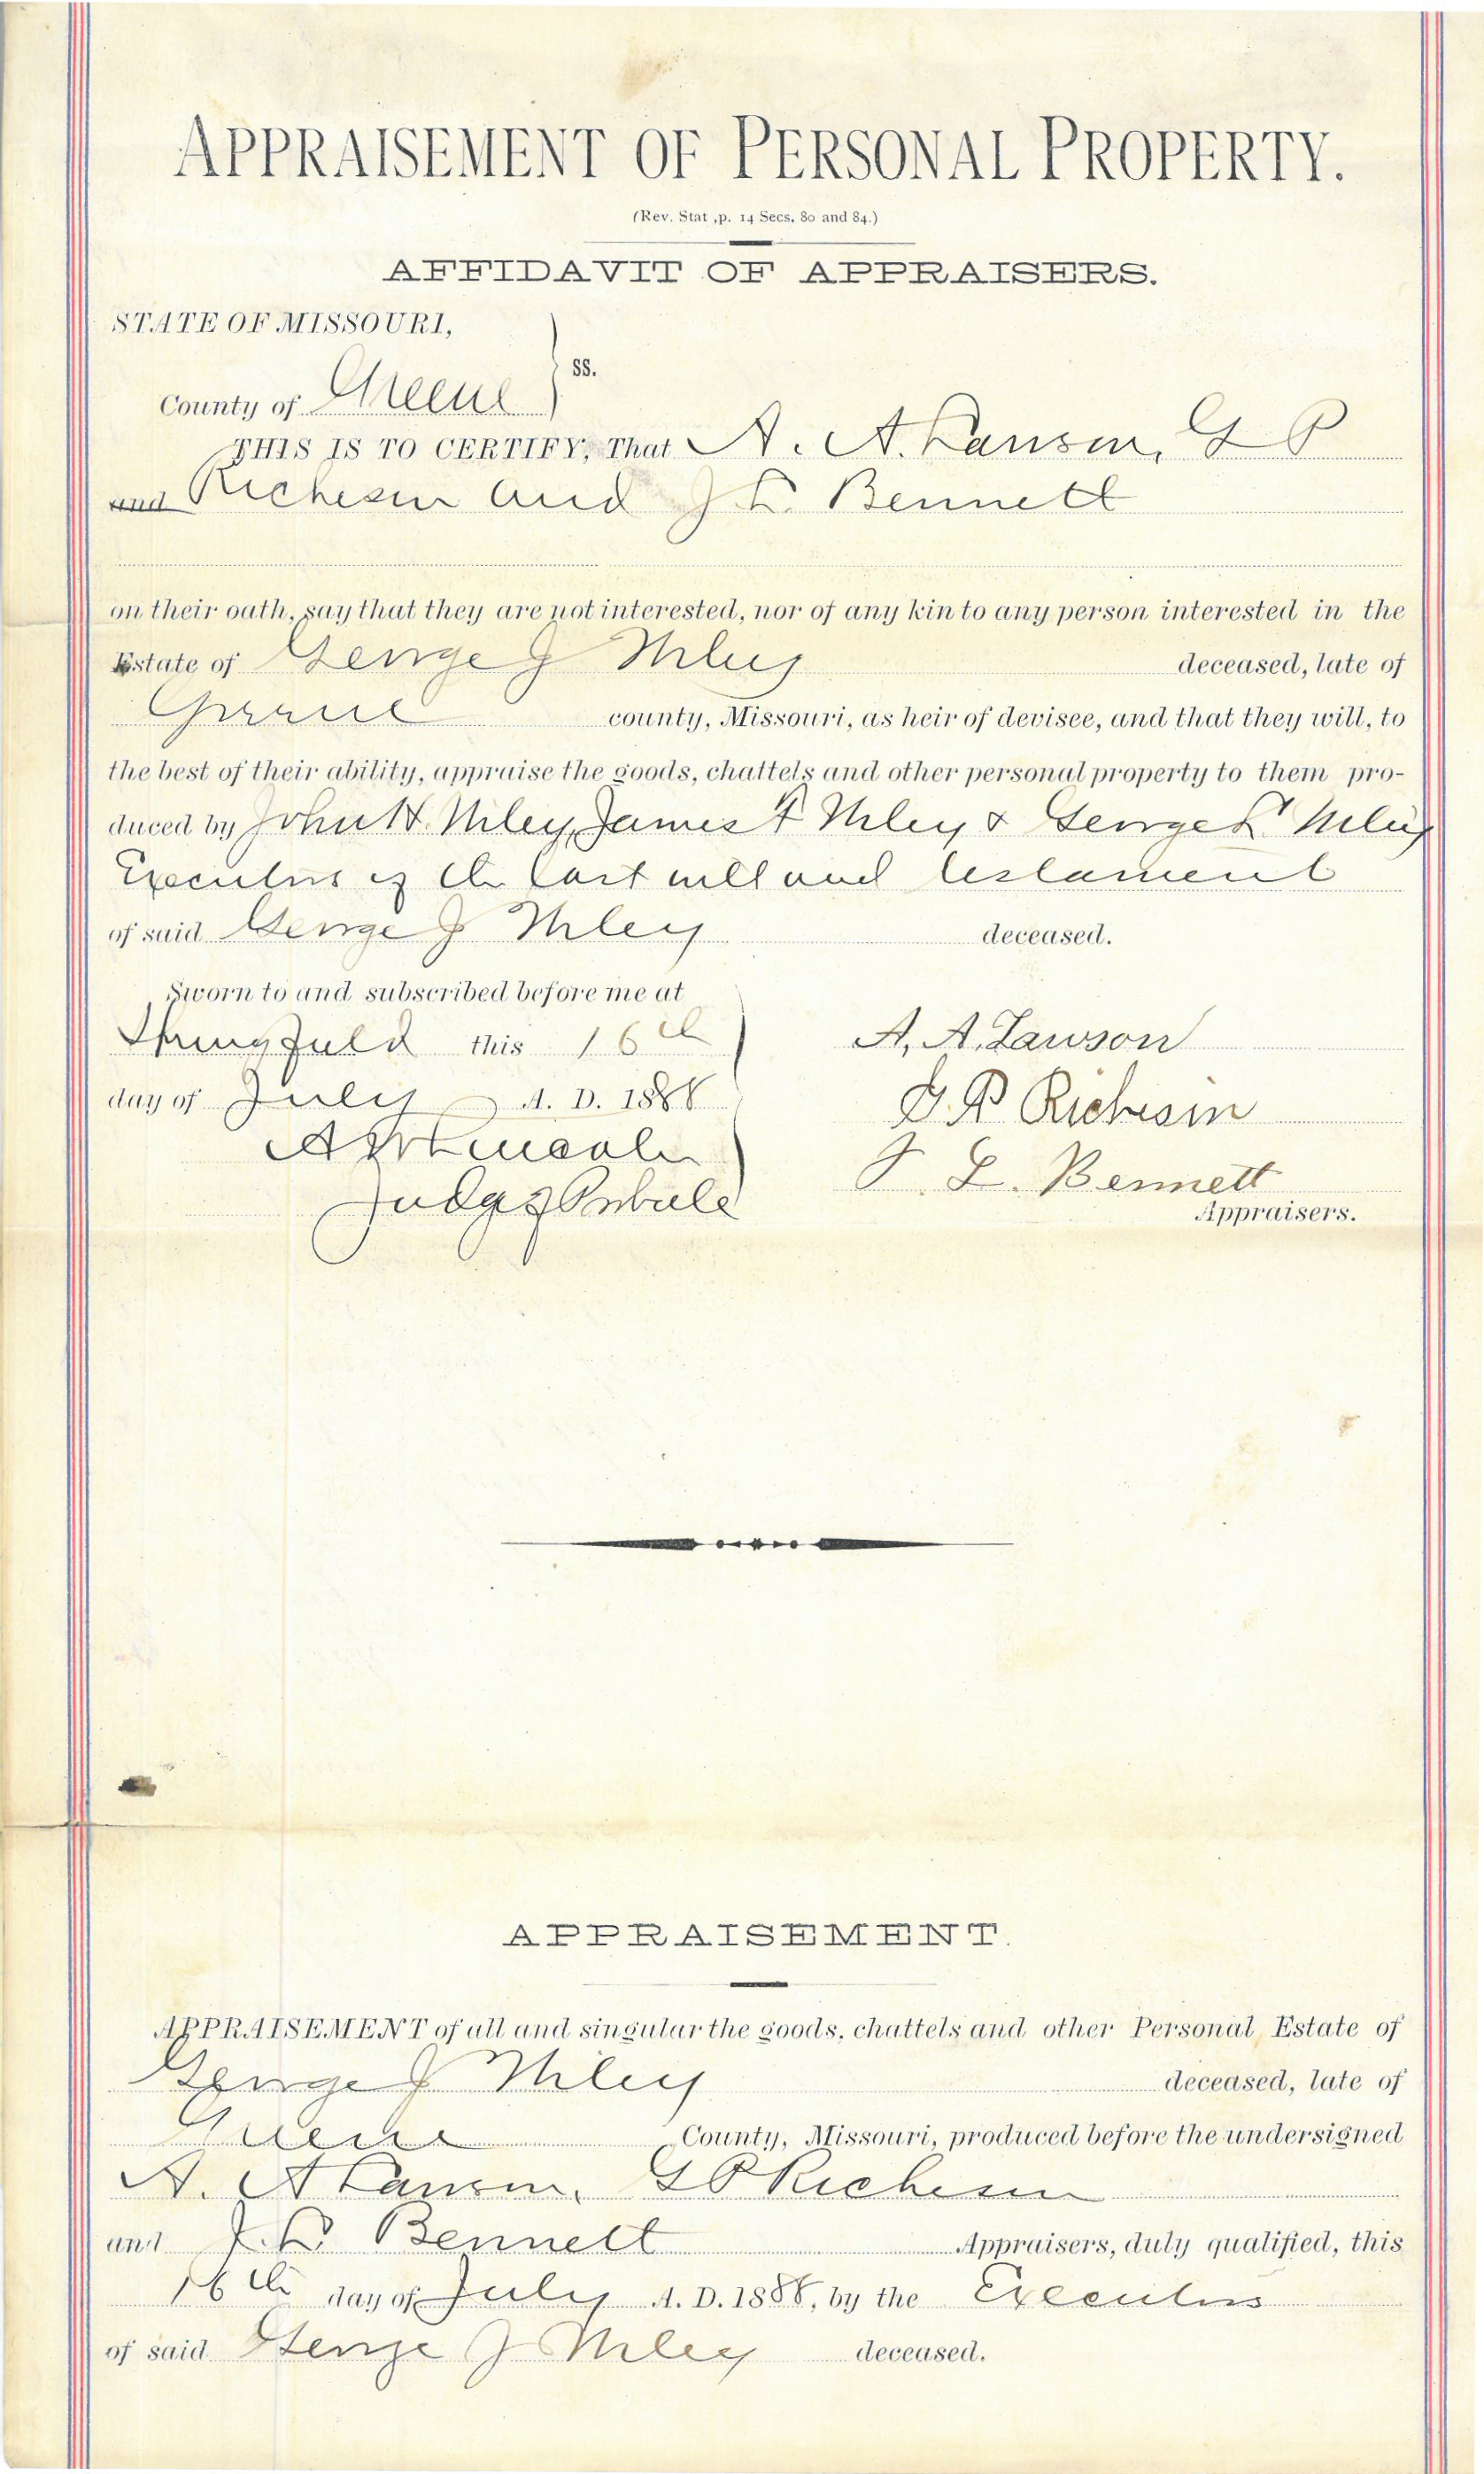 APPRAISEMENT OF PERSONAL PROPERTY.
(Rev. Stat ,p. 14 Secs. 80 and 84.)
AFFIDAVIT OF APPRAISERS.
STATE OF MISSOURI,
ss.
County of Greene
THIS IS TO CERTIFY, That A. A. Lawson, G P
and Richesin and J. L. Bennett
on their oath, say that they are not interested, nor of any kin to any person interested in the
Estate of George J Miley deceased, late of
Greene county, Missouri, as heir of devisee, and that they will, to
the best of their ability, appraise the goods, chattels and other personal property to them pro-
duced by John H. Miley, James F Miley & George L Miley
Executors of the last will and testament
of said George J Miley deceased.
Sworn to and subscribed before me at
Springfield this 16th
day of July A. D. 1888
A W Lincoln
Judge of Probate
A. A. Lawson
G. P Richesin
J. L. Bennett
Appraisers.
APPRAISEMENT.
APPRAISEMENT of all and singular the goods, chattels and other Personal Estate of
George J Miley deceased, late of
Greene County, Missouri, produced before the undersigned
A. A Lawson, G P Richesin
and J. L. Bennett Appraisers, duly qualified, this
16th day of July A. D. 1888, by the Executors
of said George J Miley deceased.